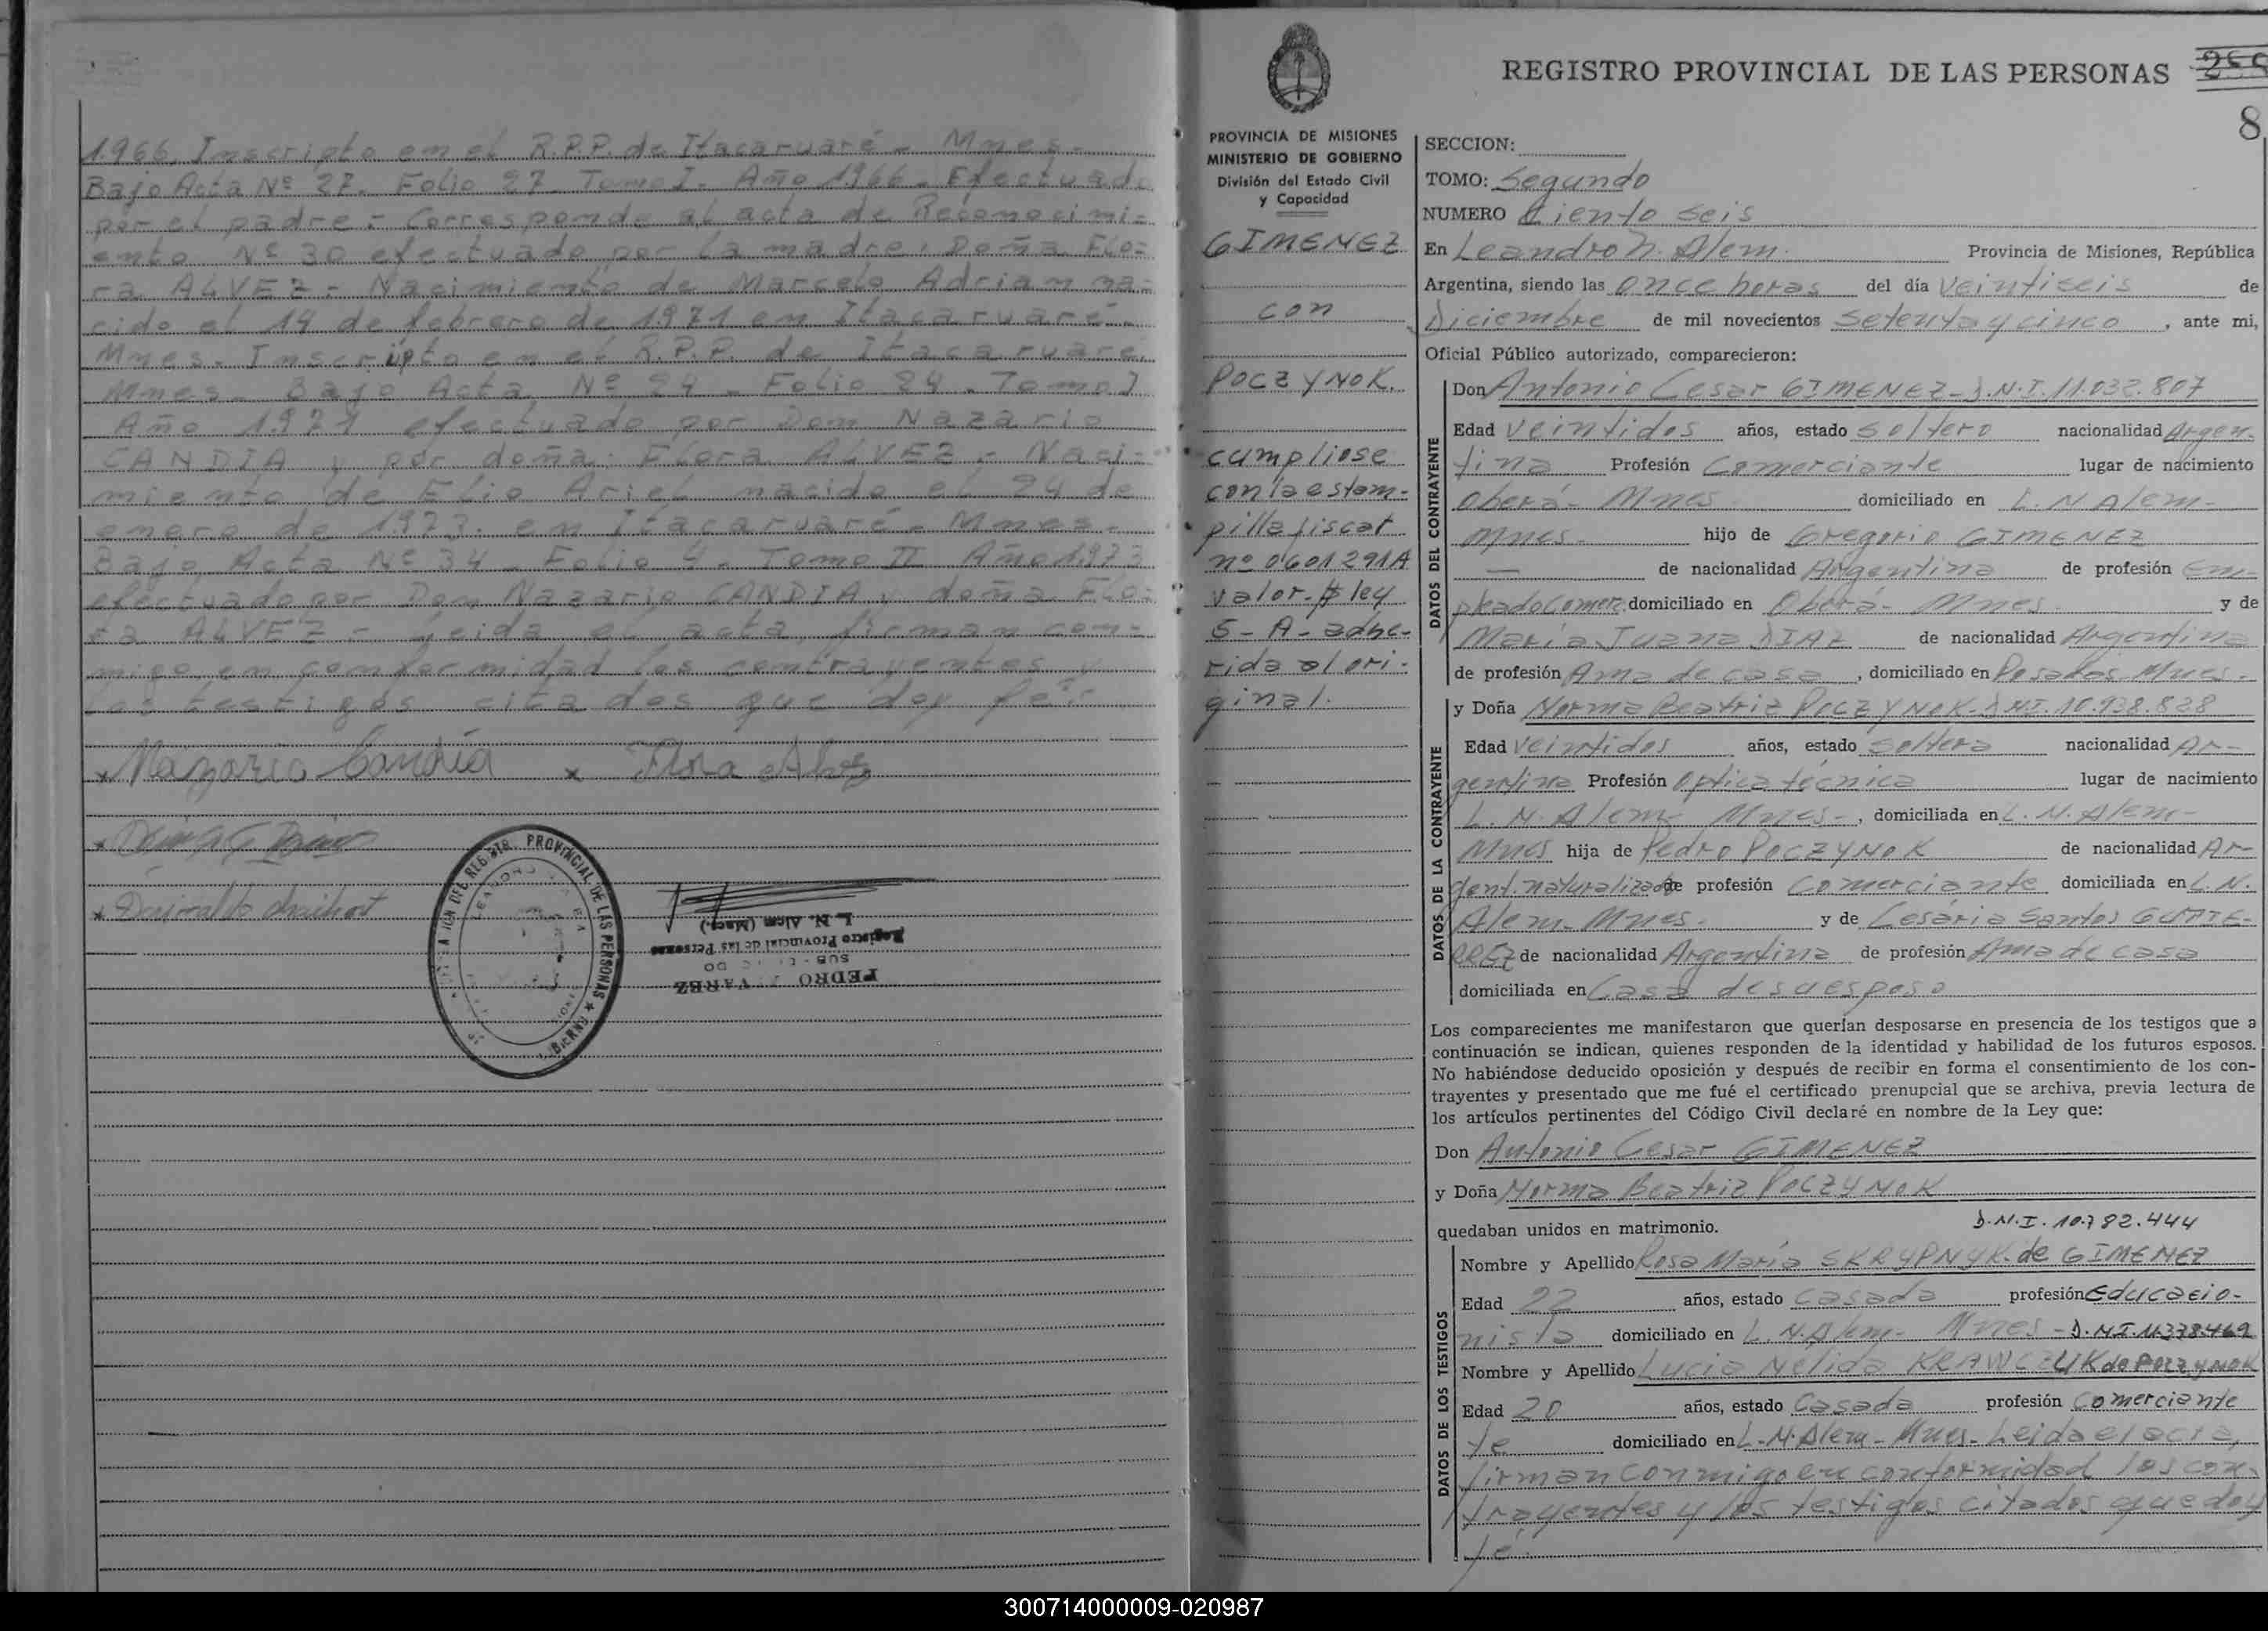 1966. Inscripto en el R.P.P. de Itacaruaré - Mnes -
Bajo Acta Nº 27. Folio 27. Tomo I. Año 1966 - Efectuado
por el padre - Corresponde al acta de Reconocimi=
ento Nº 30 efectuado por la madre. Doña Flo=
ra ALVEZ - Nacimiento de Marcelo Adrian na=
cido el 14 de febrero de 1971 en Itacaruaré -
Mnes - Inscripto en el R.P.P. de Itacaruaré.
Mnes - Bajo Acta Nº 24 - Folio 24 - Tomo I
Año 1971 efectuado por Don Nazario
CANDIA y por doña: Flora ALVEZ - Naci=
miento de Elio Ariel nacido el 24 de
enero de 1973. en Itacaruaré - Mnes -
Bajo Acta Nº 34 - Folio 4 - Tomo II Año 1973
efectuado por Don Nazario CANDIA y doña Flo=
ra ALVEZ - Leida el acta, firman con=
migo en conformidad los contrayentes y
los testigos citados que doy fe=
Nazario Candia Flora Alvez
PROVINCIAL DE LAS PERSONAS
L. N. Alem (Mnes.)
Registro Provincial de las Personas
PEDRO
REGISTRO PROVINCIAL DE LAS PERSONAS
8
PROVINCIA DE MISIONES
MINISTERIO DE GOBIERNO
División del Estado Civil
y Capacidad
GIMENEZ
con
POCZYNOK.
cumpliose
con la estam-
pilla fiscal
nº 0601291A
valor. $ ley
5 - A - adhe-
rida al ori-
ginal.
SECCION:
TOMO: Segundo
NUMERO Ciento seis
En Leandro N. Alem. Provincia de Misiones, República
Argentina, siendo las once horas del día veintiseis de
Diciembre de mil novecientos setenta y cinco, ante mi,
Oficial Público autorizado, comparecieron:
DATOS DEL CONTRAYENTE
Don Antonio Cesar GIMENEZ - D.N.I. 11.032.807
Edad veintidos años, estado soltero nacionalidad Argen-
tina Profesión Comerciante lugar de nacimiento
Oberá - Mnes domiciliado en L. N Alem -
Mnes - hijo de Gregorio GIMENEZ
— de nacionalidad Argentina de profesión Em-
pleado Comer. domiciliado en Oberá - Mnes. y de
María Juana DIAZ de nacionalidad Argentina
de profesión Ama de casa, domiciliado en Posadas - Mnes -
DATOS DE LA CONTRAYENTE
y Doña Norma Beatriz POCZYNOK - D.N.I. 10.938.828
Edad veintidos años, estado soltera nacionalidad Ar-
gentina Profesión Optica técnica lugar de nacimiento
L. N. Alem - Mnes -, domiciliada en L. N. Alem -
Mnes hija de Pedro POCZYNOK de nacionalidad Ar-
gent. naturalizado de profesión Comerciante domiciliada en L. N.
Alem - Mnes. y de Cesária Santos GUTIE-
RREZ de nacionalidad Argentina de profesión Ama de casa
domiciliada en Casa de su esposo
Los comparecientes me manifestaron que querían desposarse en presencia de los testigos que a
continuación se indican, quienes responden de la identidad y habilidad de los futuros esposos.
No habiéndose deducido oposición y después de recibir en forma el consentimiento de los con-
trayentes y presentado que me fué el certificado prenupcial que se archiva, previa lectura de
los artículos pertinentes del Código Civil declaré en nombre de la Ley que:
Don Antonio Cesar GIMENEZ
y Doña Norma Beatriz POCZYNOK
quedaban unidos en matrimonio. D.N.I. 10.782.444
DATOS DE LOS TESTIGOS
Nombre y Apellido Rosa María SKRYPNYK. de GIMENEZ
Edad 22 años, estado casada profesión Educacio-
nista domiciliado en L. N. Alem - Mnes - D.N.I. 11.378.469
Nombre y Apellido Lucia Nélida KRAWCZUK de POCZYNOK
Edad 20 años, estado Casada profesión Comerciante
te domiciliado en L - N. Alem - Mnes - Leida el acta,
firman conmigo en conformidad los con-
trayentes y los testigos citados que doy
fé.
300714000009-020987